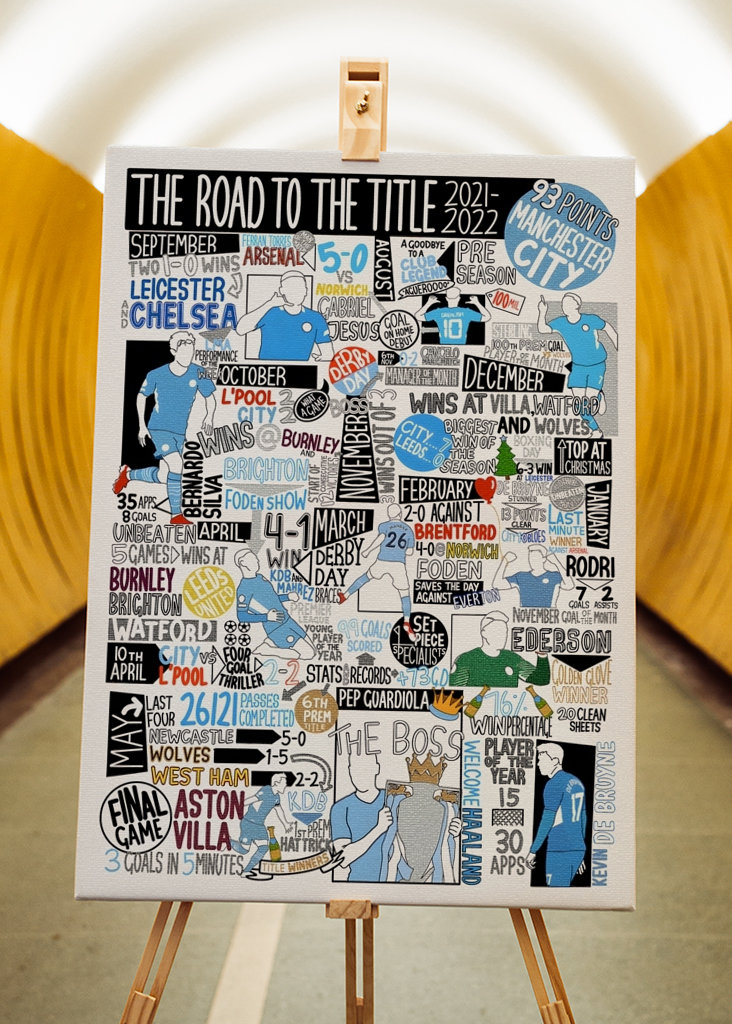 THE ROAD TO THE TITLE 2021-
2022
93 POINTS
MANCHESTER
CITY
SEPTEMBER
TWO 1-0 WINS
LEICESTER
AND
CHELSEA
FERRAN TORRES
ARSENAL
5-0
VS
NORWICH
GABRIEL
JESUS
AUGUST
A GOODBYE
TO A
CLUB
LEGEND
PRE
SEASON
£100 MIL
10
GOAL
ON HOME
DEBUT
STERLING
100TH PREM GOAL
VS WOLVES
PLAYER OF THE MONTH
PERFORMANCE
OF THE
WEEK
OCTOBER
L'POOL 2
CITY 2
WHAT
A GAME
DERBY
DAY
6TH
NOV
0-2
CANCELO
MANAGER OF THE MONTH
BOSS
DECEMBER
WINS AT VILLA, WATFORD
AND WOLVES
WINS @ BURNLEY
AND
BRIGHTON
FODEN SHOW
NOVEMBER
3 WINS OUT OF 3
CITY...7
LEEDS...0
BIGGEST
WIN OF
THE
SEASON
BOXING
DAY
6-3 WIN
AT LEICESTER
TOP AT
CHRISTMAS
BERNARDO
SILVA
35 APPS
8 GOALS
FEBRUARY
2-0 AGAINST
BRENTFORD
4-0 @ NORWICH
FODEN
SAVES THE DAY
AGAINST EVERTON
DE BRUYNE
STUNNER
13 POINTS
CLEAR
CITY BLUES
UNBEATEN
LAST
MINUTE
WINNER
AGAINST ARSENAL
JANUARY
UNBEATEN
5 GAMES
APRIL
WINS AT
BURNLEY
BRIGHTON
WATFORD
LEEDS
UNITED
4-1
WIN
MARCH
DERBY
DAY
KDB AND
MAHREZ
BRACES
26
RODRI
7
GOALS
2
ASSISTS
NOVEMBER GOAL OF THE MONTH
PREMIER
LEAGUE
YOUNG
PLAYER
OF THE
YEAR
99 GOALS
SCORED
SET
PIECE
SPECIALISTS
EDERSON
GOLDEN GLOVE
WINNER
20 CLEAN
SHEETS
10TH
APRIL
CITY VS
L'POOL
FOUR
GOAL
THRILLER
2-2
STATS AND RECORDS
+73 GD
MAY
LAST
FOUR
26121
PASSES
COMPLETED
6TH
PREM
TITLE
PEP GUARDIOLA
76%
WIN PERCENTAGE
NEWCASTLE 5-0
WOLVES 1-5
WEST HAM 2-2
THE BOSS
FINAL
GAME
ASTON
VILLA
KDB
1ST PREM
HAT TRICK
3 GOALS IN 5 MINUTES
TITLE WINNERS
WELCOME HAALAND
PLAYER
OF THE
YEAR
15
30
APPS
17
7
KEVIN DE BRUYNE